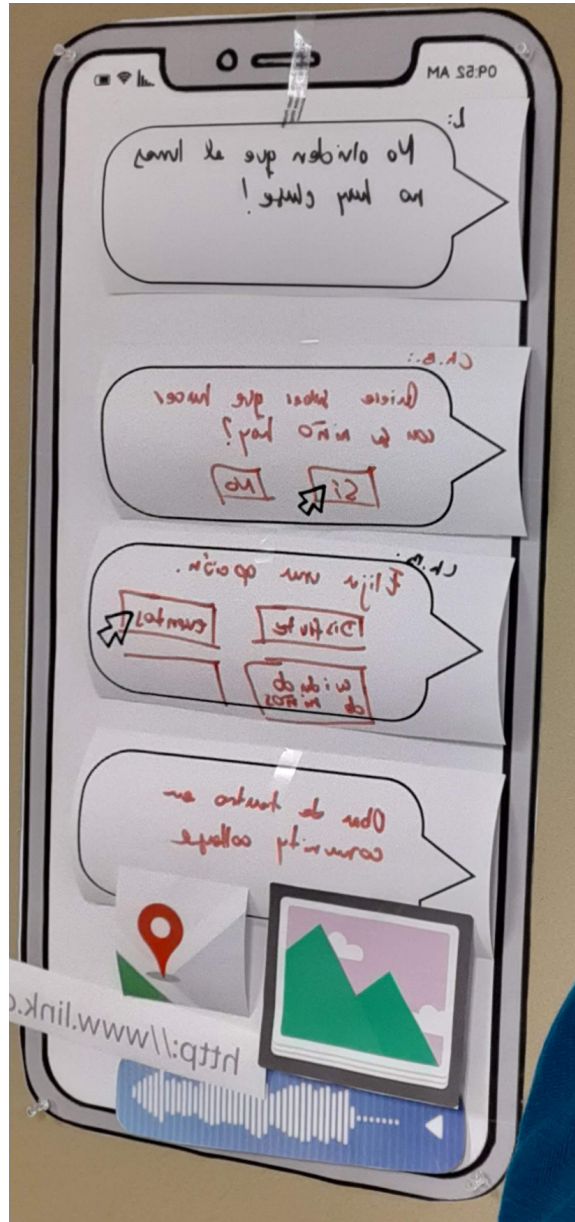 09:52 AM
L:
No olviden que el lunes
no hay clase!
Ch.B.:
Quiere saber que hacer
con su niño hoy?
Sí
No
Ch.B.:
Elija una opción.
Disfrute
eventos
cuidado
de niños
Obra de teatro en
comunity college
http://www.link.c